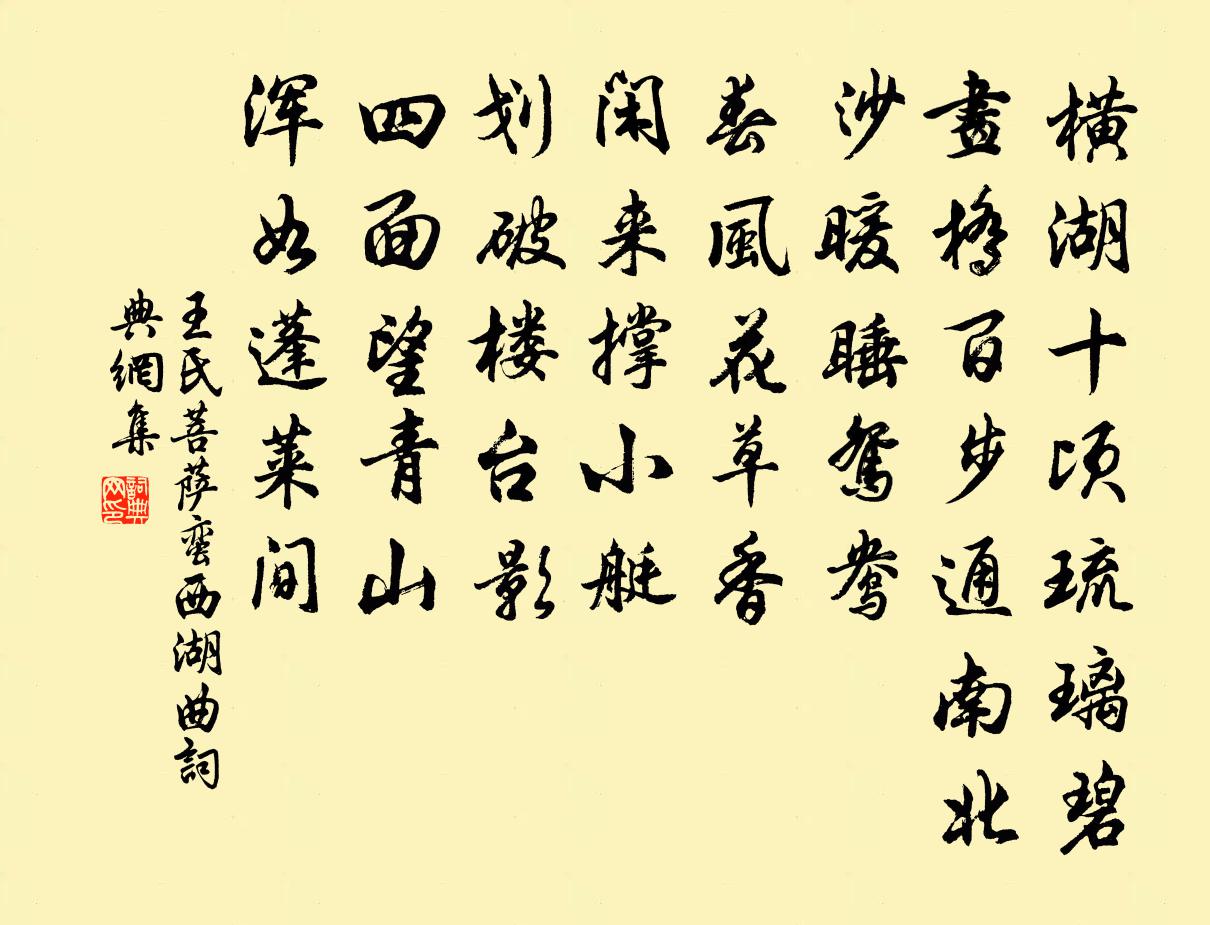 横湖十顷琉璃碧
畫橋百步通南北
沙暖睡鴛鴦
春風花草香
闲来撑小艇
划破楼台影
四面望青山
浑如蓬莱间
王氏菩萨蛮西湖曲詞
典網集
詞典
网印